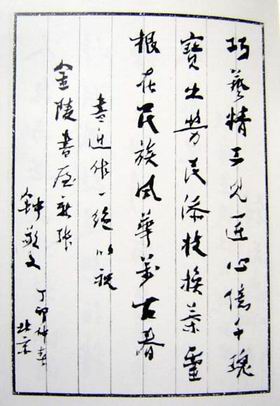 巧藝精工見匠心億千瑰
寶出勞民添枝換葉靈
根在民族風華萬古春
書近作一絕以祝
金陵書屋新張
鍾敬文
丁卯仲春
北京